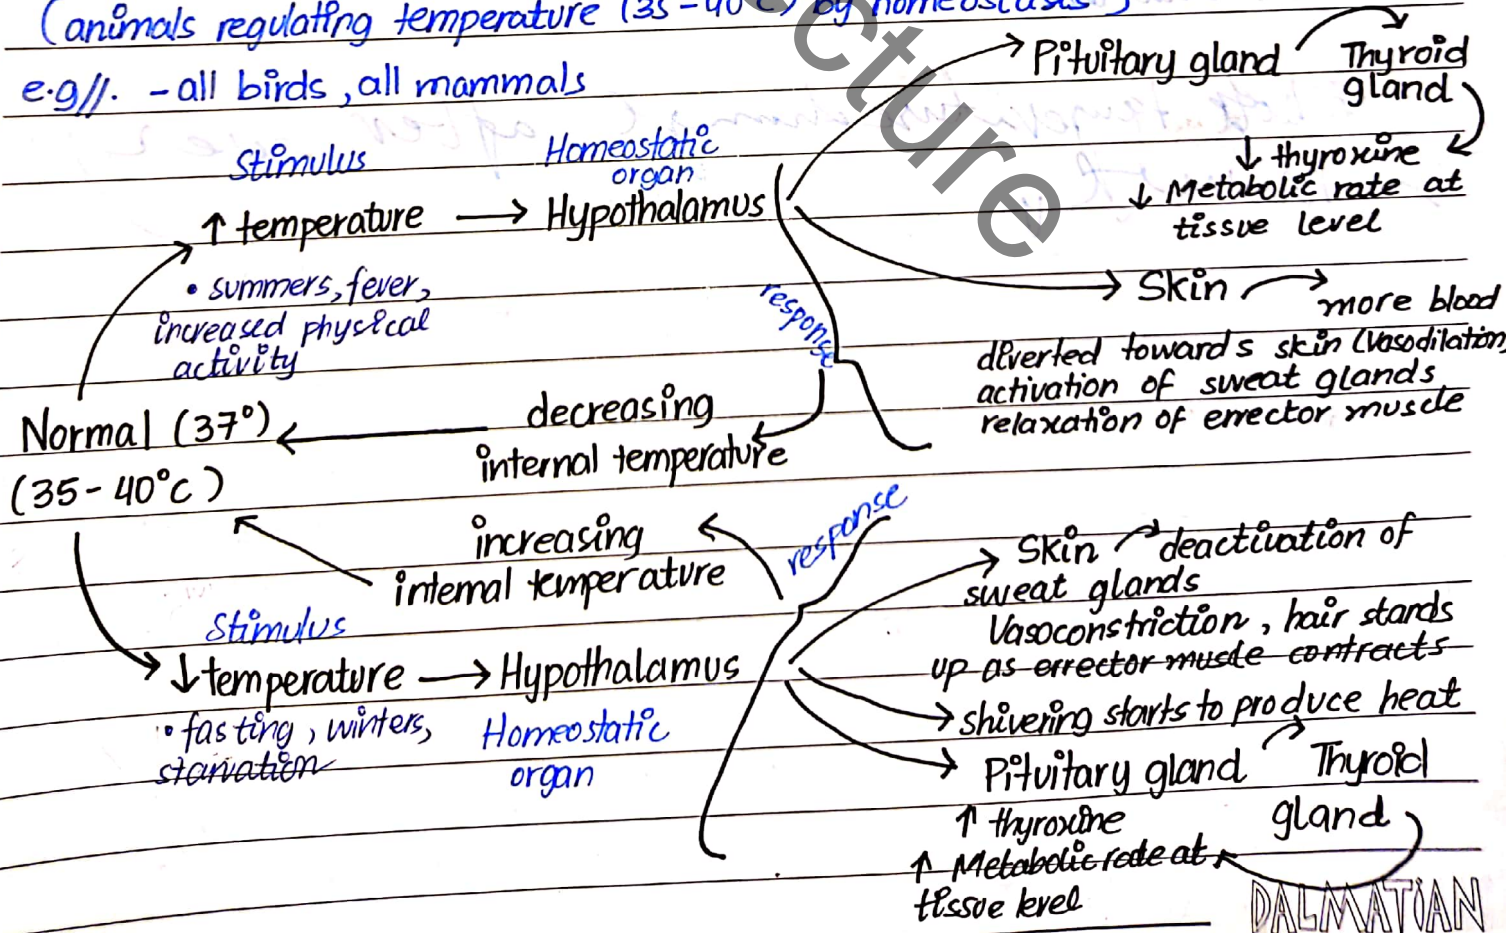 (animals regulating temperature (35-40°C) by homeostasis)
e.g//. - all birds, all mammals
Stimulus
↑ temperature → Hypothalamus
Homeostatic
organ
• summers, fever,
increased physical
activity
response
Pituitary gland
Thyroid
gland
↓ thyroxine
↓ Metabolic rate at
tissue level
Skin
more blood
diverted towards skin (Vasodilation)
activation of sweat glands
relaxation of errector muscle
decreasing
internal temperature
Normal (37°)
(35-40°C)
increasing
internal temperature
Stimulus
↓ temperature → Hypothalamus
• fasting, winters,
starvation
Homeostatic
organ
response
Skin deactivation of
sweat glands
Vasoconstriction, hair stands
up as errector muscle contracts
shivering starts to produce heat
Pituitary gland
Thyroid
gland
↑ thyroxine
↑ Metabolic rate at
tissue level
cture
DALMATIAN